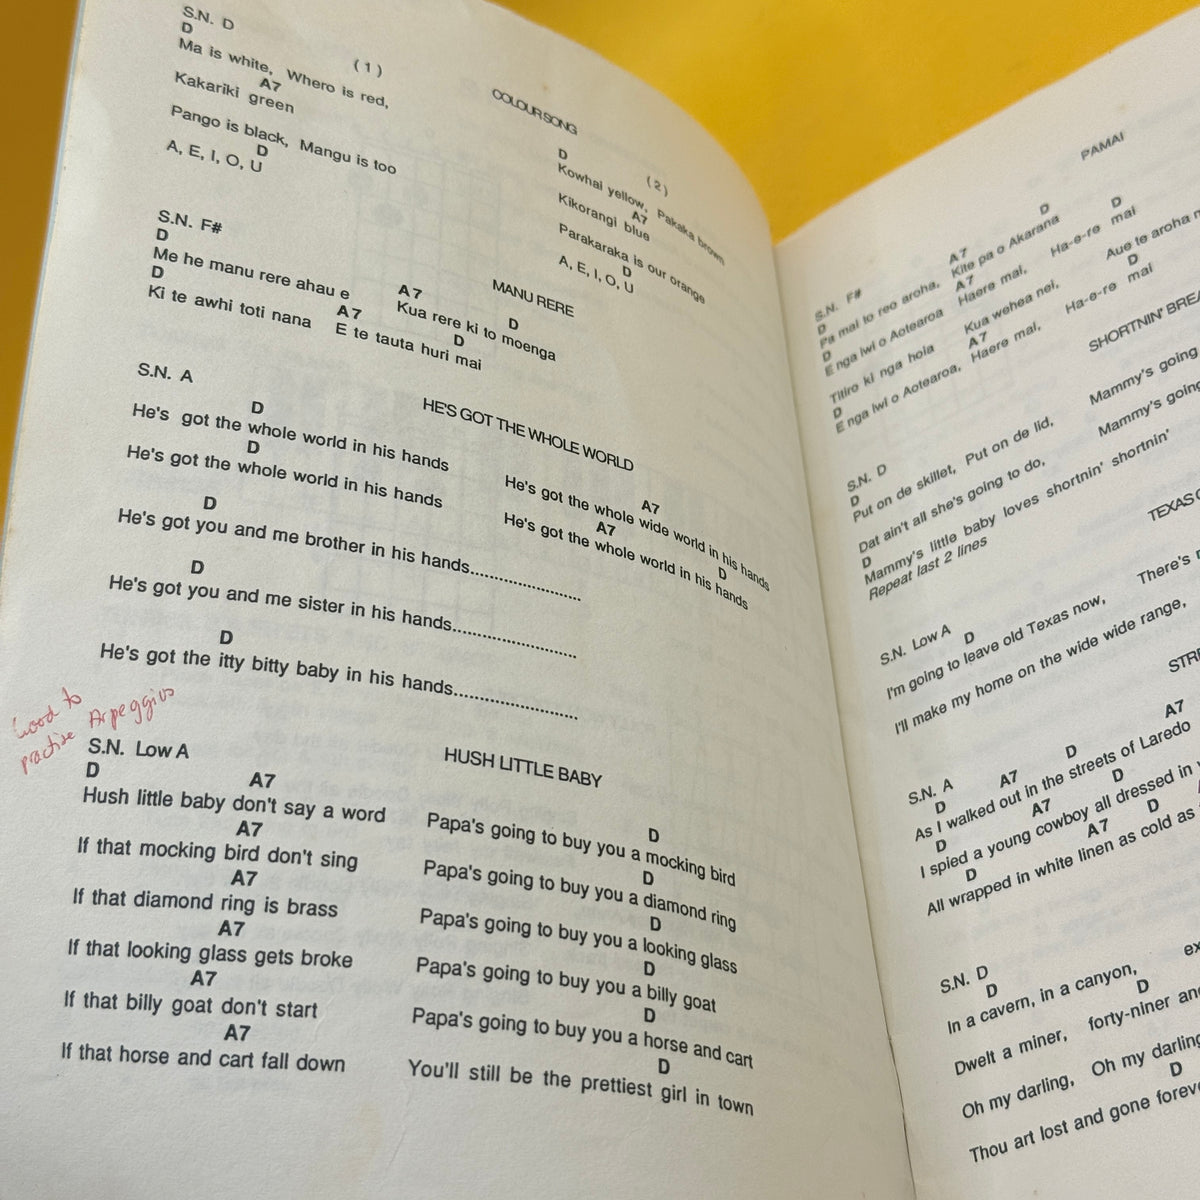 COLOUR SONG
S.N. D
(1)
D
Ma is white, Whero is red,
A7
Kakariki green
Pango is black, Mangu is too
D
A, E, I, O, U
(2)
D
Kowhai yellow, Pakaka brown
A7
Kikorangi blue
Parakaraka is our orange
D
A, E, I, O, U
MANU RERE
S.N. F#
D A7
Me he manu rere ahau e Kua rere ki to moenga
D A7 D D
Ki te awhi toti nana E te tauta huri mai
HE'S GOT THE WHOLE WORLD
S.N. A
D A7
He's got the whole world in his hands He's got the whole wide world in his hands
D A7 D
He's got the whole world in his hands He's got the whole world in his hands
D
He's got you and me brother in his hands..............................
D
He's got you and me sister in his hands..............................
D
He's got the itty bitty baby in his hands..............................
Good to
practise Arpeggios
HUSH LITTLE BABY
S.N. Low A
D A7 D
Hush little baby don't say a word Papa's going to buy you a mocking bird
A7 D
If that mocking bird don't sing Papa's going to buy you a diamond ring
A7 D
If that diamond ring is brass Papa's going to buy you a looking glass
A7 D
If that looking glass gets broke Papa's going to buy you a billy goat
A7 D
If that billy goat don't start Papa's going to buy you a horse and cart
A7 D
If that horse and cart fall down You'll still be the prettiest girl in town
PAMAI
S.N. F#
D A7 D D
Pa mai to reo aroha, Kite pa o Akarana
D A7
E nga iwi o Aotearoa Haere mai, Ha-e-re mai
Titiro ki nga hoia Kua wehea nei, Aue te aroha
D A7 D
E nga iwi o Aotearoa, Haere mai, Ha-e-re mai
SHORTNIN'
S.N. D
D
Put on de skillet, Put on de lid, Mammy's going
Dat ain't all she's going to do, Mammy's going
D
Mammy's little baby loves shortnin' shortnin'
Repeat last 2 lines
TEXAS
S.N. Low A
D
I'm going to leave old Texas now, There's
I'll make my home on the wide wide range,
S.N. A
D A7 D A7
As I walked out in the streets of Laredo
D A7 D
I spied a young cowboy all dressed in
D A7 D
All wrapped in white linen as cold as
S.N. D
D
In a cavern, in a canyon,
D
Dwelt a miner, forty-niner
Oh my darling, Oh my darling
D
Thou art lost and gone